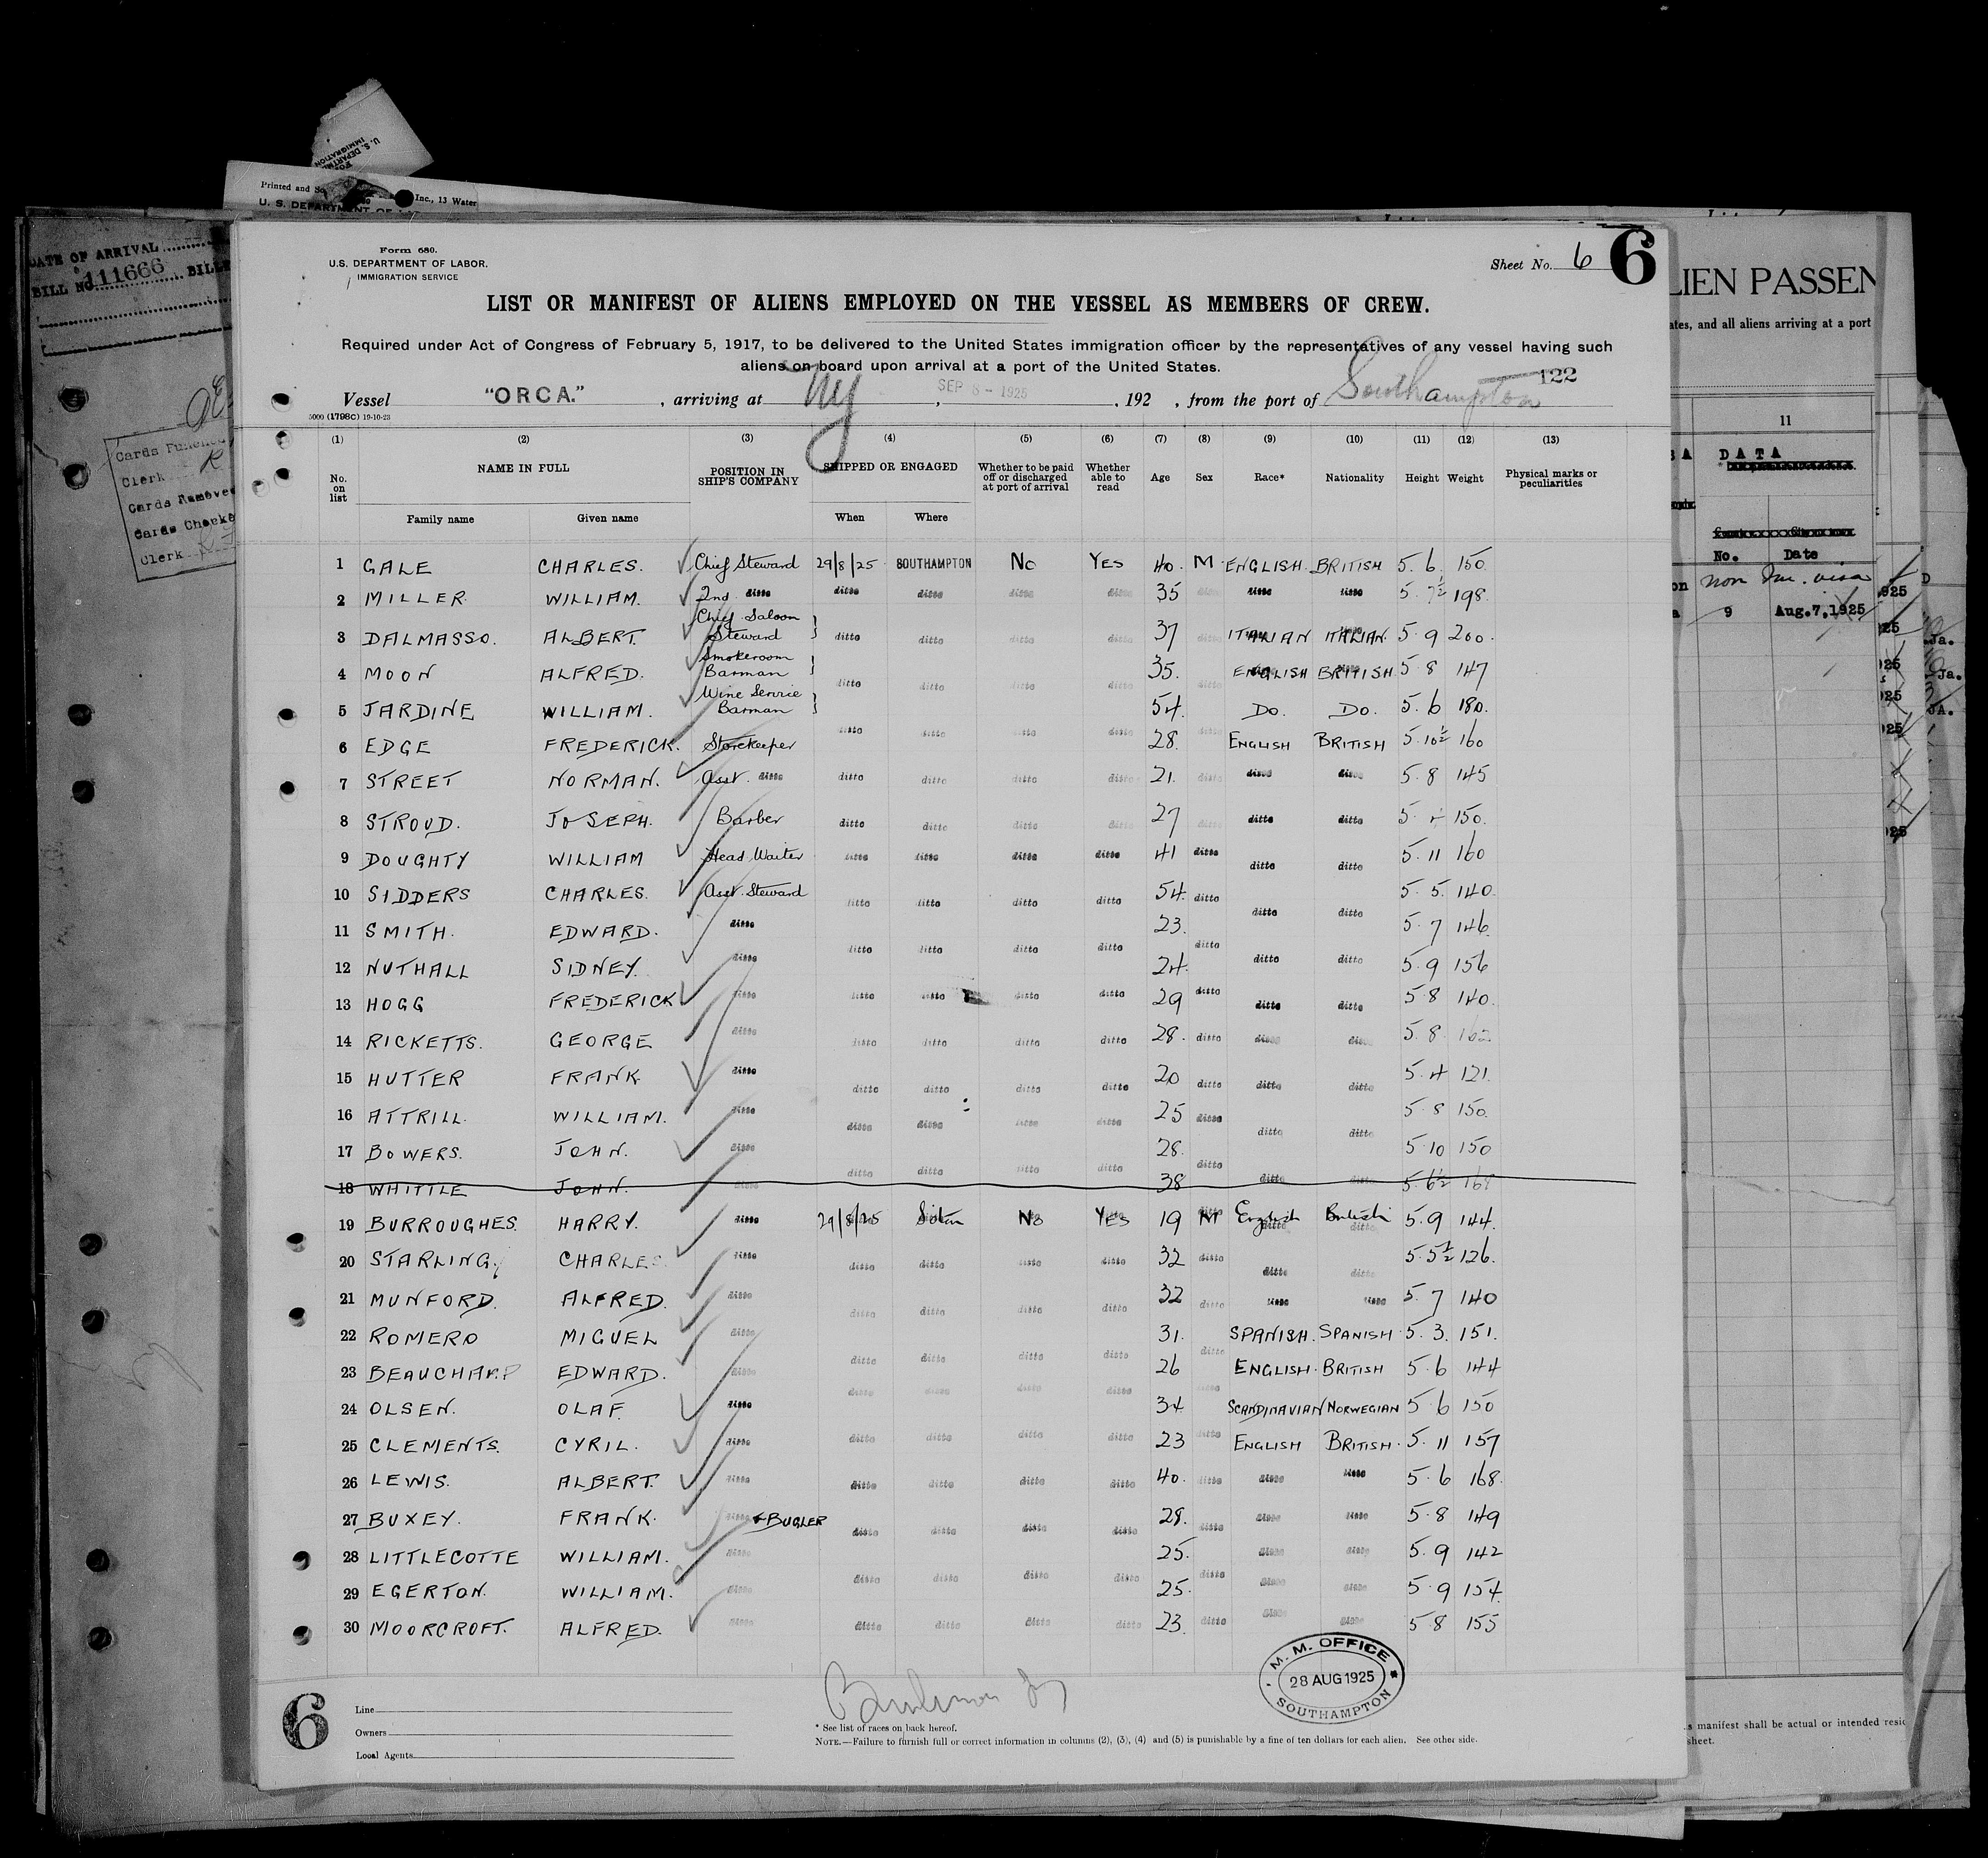 U. S. DEPARTMENT
IMMIGRATION
Printed and So
Inc., 13 Water
U. S. DEPARTMENT OF LA
DATE OF ARRIVAL
BILL NO. 111666 BILL
Cards Punched
Clerk
Cards Removed
Cards Checke
Clerk
Form 680.
U.S. DEPARTMENT OF LABOR.
IMMIGRATION SERVICE
Sheet No. 6 6
LIST OR MANIFEST OF ALIENS EMPLOYED ON THE VESSEL AS MEMBERS OF CREW.
Required under Act of Congress of February 5, 1917, to be delivered to the United States immigration officer by the representatives of any vessel having such
aliens on board upon arrival at a port of the United States.
122
Vessel "ORCA." , arriving at NY , SEP 8 - 1925 , 192 , from the port of Southampton
5000 (1798C) 19-10-23
(1) (2) (3) (4) (5) (6) (7) (8) (9) (10) (11) (12) (13)
No. on list NAME IN FULL Family name Given name POSITION IN SHIP'S COMPANY SHIPPED OR ENGAGED When Where Whether to be paid off or discharged at port of arrival Whether able to read Age Sex Race* Nationality Height Weight Physical marks or peculiarities
1 GALE CHARLES. Chief Steward 29/8/25 SOUTHAMPTON No YES 40. M. ENGLISH. BRITISH 5. 6. 150.
2 MILLER WILLIAM. 2nd ditto ditto ditto ditto ditto 35 ditto ditto ditto 5. 7½ 198.
3 DALMASSO. ALBERT. Chief Saloon Steward ditto ditto ditto ditto 37 ditto ITALIAN ITALIAN. 5 9 200.
4 MOON ALFRED. Smokeroom Barman ditto ditto ditto ditto 35. ditto ENGLISH BRITISH 5 8 147
5 JARDINE WILLIAM. Wine Service Barman 54. DO. DO. 5. 6 180.
6 EDGE FREDERICK. Storekeeper ditto ditto ditto ditto 28. ditto ENGLISH BRITISH 5. 10½ 160
7 STREET NORMAN. Asst. ditto ditto ditto ditto ditto 21. ditto ditto ditto 5. 8 145
8 STROUD. JOSEPH. Barber ditto ditto ditto ditto 27 ditto ditto ditto 5. 150.
9 DOUGHTY WILLIAM Head Waiter ditto ditto ditto ditto 41 ditto ditto ditto 5. 11 160
10 SIDDERS CHARLES. Asst. Steward ditto ditto ditto ditto 54. ditto ditto ditto 5. 5. 140.
11 SMITH. EDWARD. ditto ditto ditto ditto ditto 23. ditto 5. 7 146.
12 NUTHALL SIDNEY. ditto 24. ditto ditto 5 9 156
13 HOGG FREDERICK ditto ditto ditto ditto ditto 29 ditto ditto ditto 5 8 140.
14 RICKETTS. GEORGE ditto ditto ditto ditto ditto 28. ditto ditto ditto 5. 8. 162
15 HUTTER FRANK ditto ditto ditto ditto ditto 20 ditto ditto ditto 5. 4 121.
16 ATTRILL. WILLIAM. ditto ditto ditto ditto ditto 25 ditto ditto ditto 5 8 150.
17 BOWERS. JOHN. ditto 28. 5. 10 150
18 WHITTLE JOHN. ditto ditto ditto ditto ditto 38 ditto ditto ditto 5. 6½
19 BURROUGHES. HARRY. ditto 29/8/25 Soton No YES 19 M English British 5. 9 144.
20 STARLING. CHARLES ditto ditto ditto ditto ditto 32 ditto ditto ditto 5. 5½ 126.
21 MUNFORD. ALFRED. ditto ditto ditto ditto ditto 32 ditto ditto ditto 5. 7 140
22 ROMERO MIGUEL ditto 31. SPANISH. SPANISH. 5. 3. 151.
23 BEAUCHAMP EDWARD. ditto ditto ditto ditto ditto 26 ditto ENGLISH. BRITISH 5. 6 144
24 OLSEN. OLAF. ditto ditto ditto ditto ditto 34 ditto SCANDINAVIAN NORWEGIAN 5 6 150
25 CLEMENTS. CYRIL. ditto ditto ditto ditto ditto 23 ditto ENGLISH BRITISH. 5. 11 157
26 LEWIS. ALBERT. ditto ditto ditto ditto ditto 40. ditto ditto ditto 5 6 168.
27 BUXEY. FRANK. ditto + BUGLER ditto ditto ditto ditto 28. ditto ditto ditto 5 8 149
28 LITTLECOTTE WILLIAM. ditto 25. ditto ditto 5. 9 142
29 EGERTON. WILLIAM. ditto ditto ditto ditto ditto 25. ditto ditto ditto 5 9 154.
30 MOORCROFT. ALFRED. ditto ditto ditto ditto ditto 23. ditto ditto ditto 5 8 155
M. M. OFFICE
28 AUG 1925
SOUTHAMPTON
6
Line
Owners
Local Agents
* See list of races on back hereof.
NOTE.—Failure to furnish full or correct information in columns (2), (3), (4) and (5) is punishable by a fine of ten dollars for each alien. See other side.
LIEN PASSEN
ates, and all aliens arriving at a port
11
DATA
No. Date
non Im. visa
9 Aug.7,1925
s manifest shall be actual or intended resid
sheet.